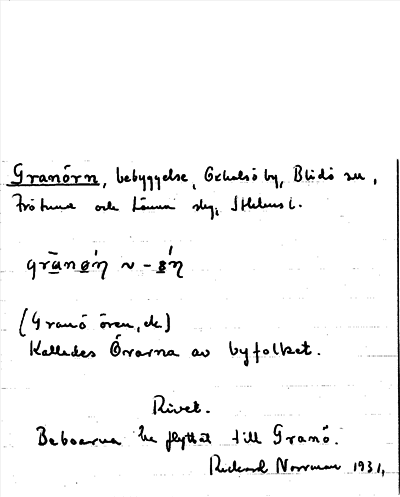 Granörn, bebyggelse, Oxhalsö by, Blidö sn,
Frötuna och Länna skg, Sthlms l.
(Granö ören, de)
Kallades Örarna av byfolket.
Rivet.
Beboarna ha flyttat till Granö.
Rickard Norrman 1931,